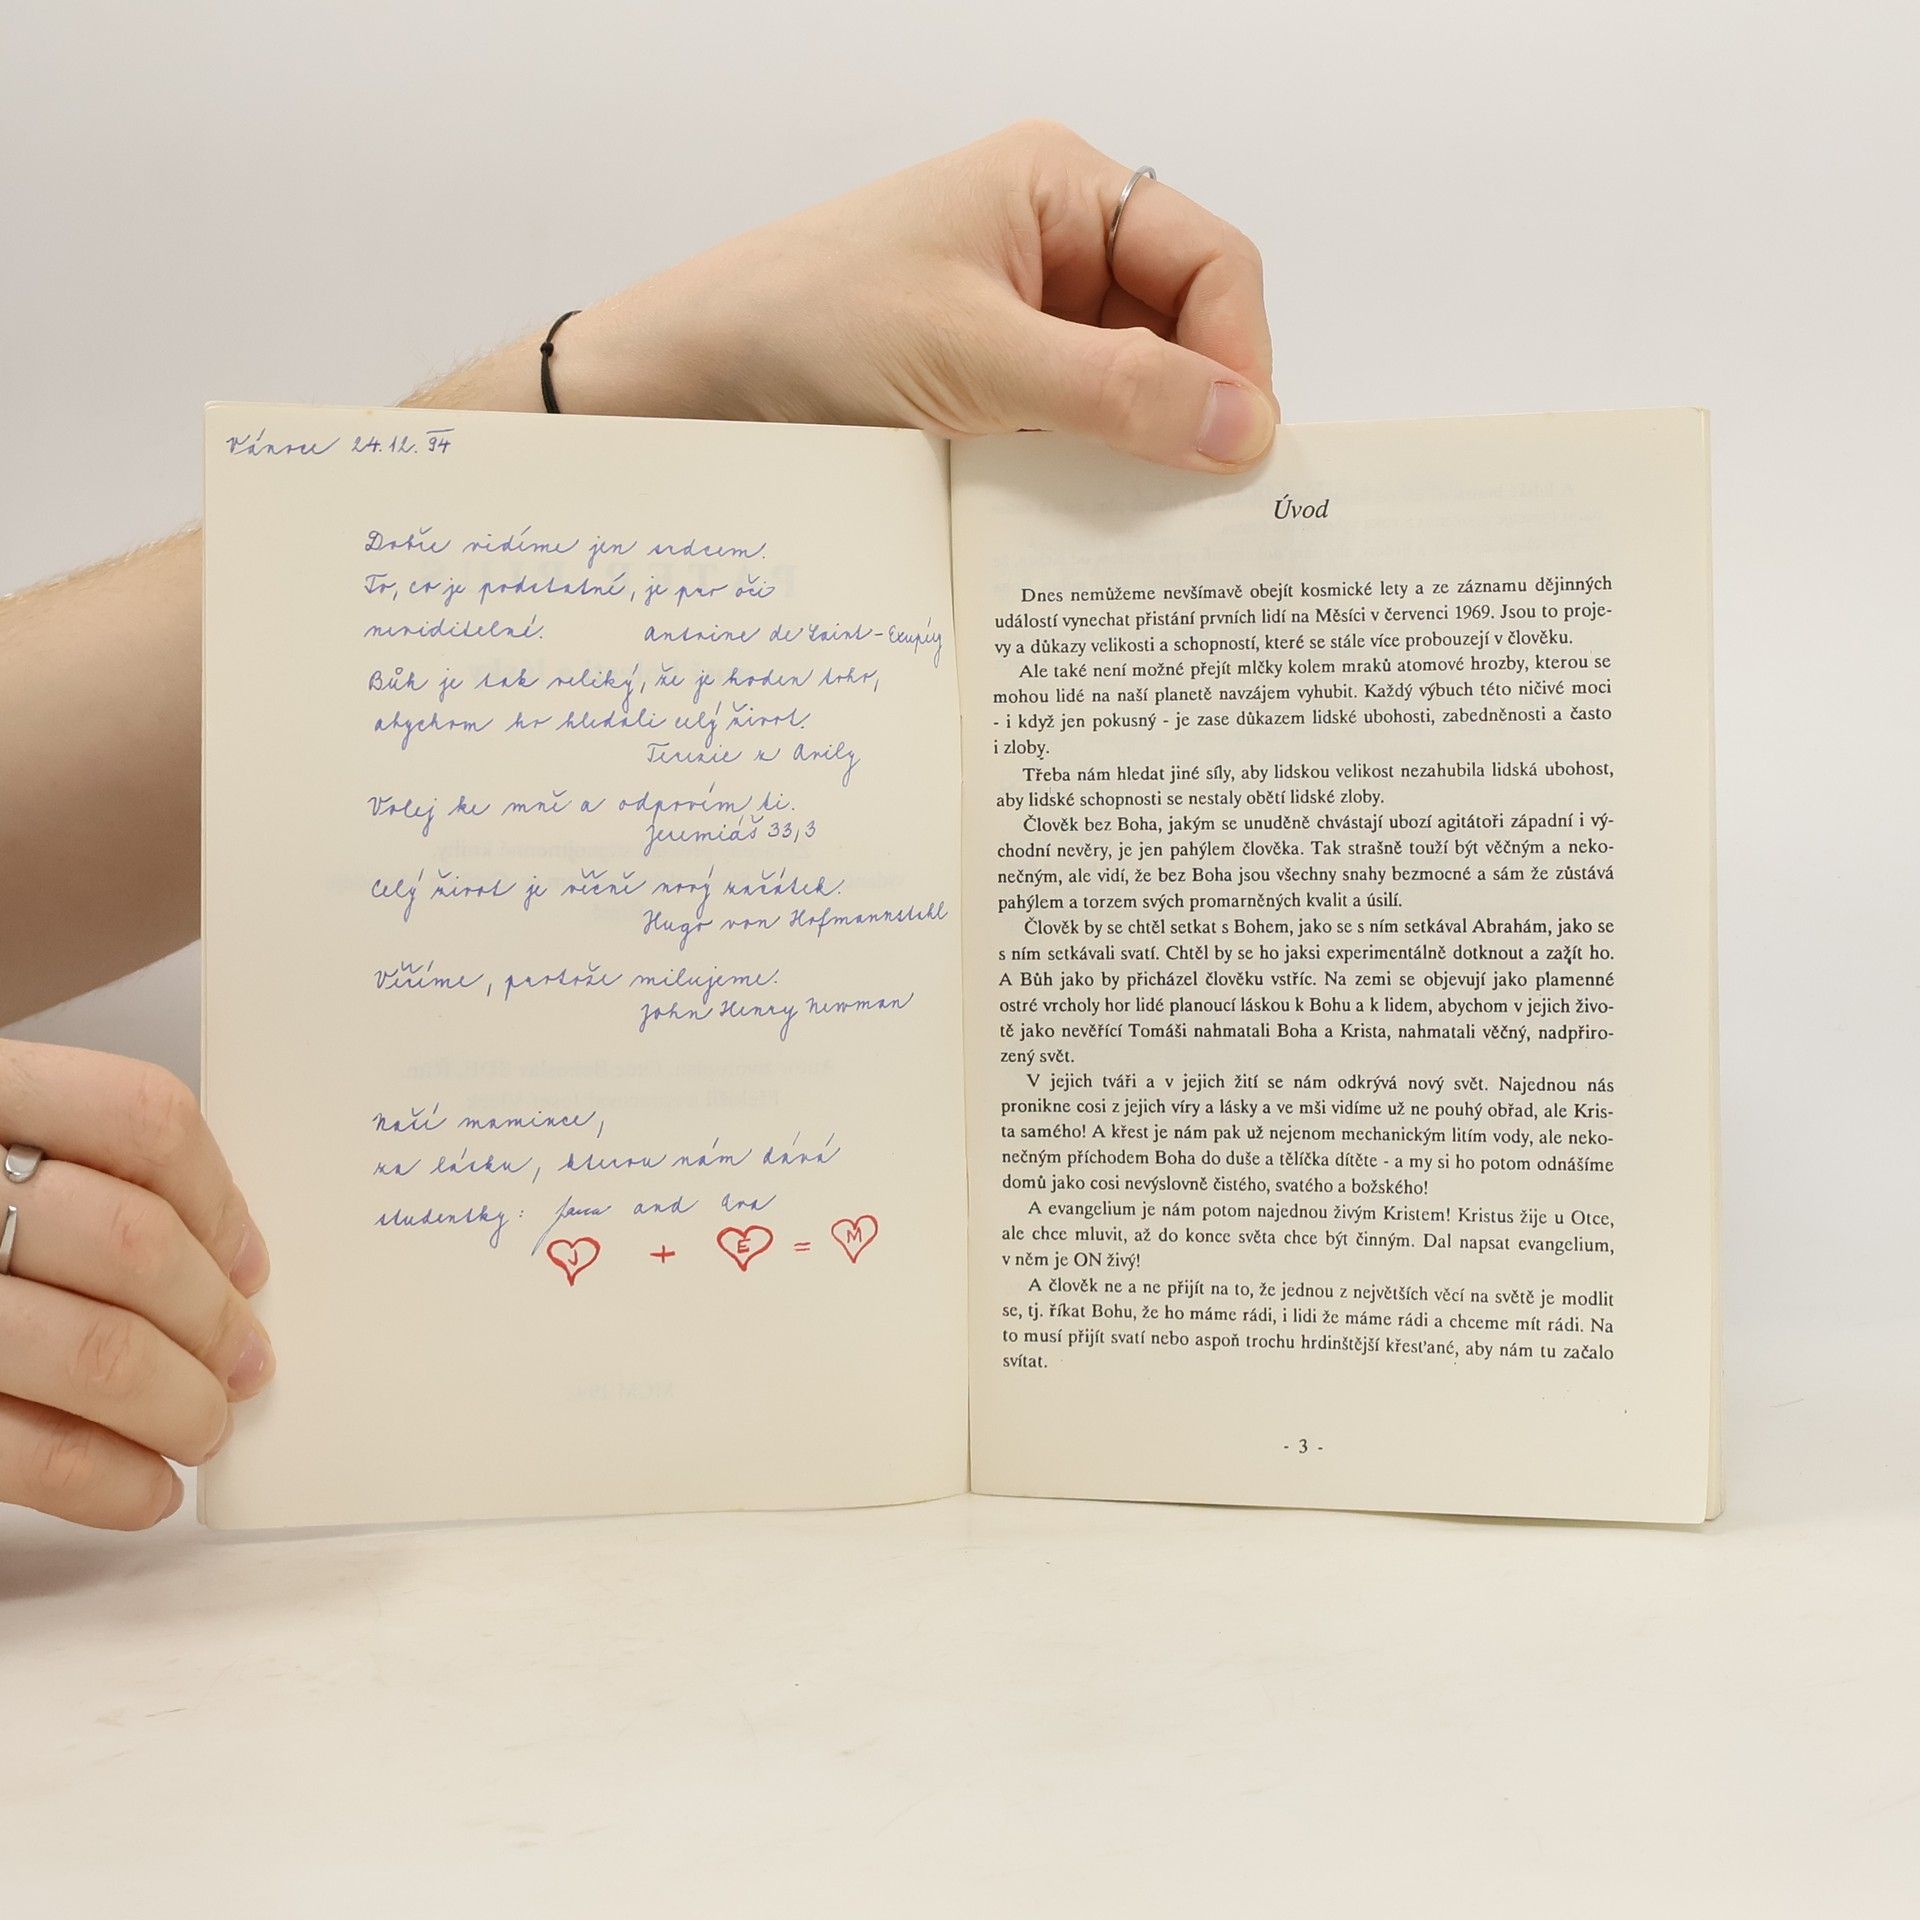 Vánoce 24.12. 94
Dobře vidíme jen srdcem.
To, co je podstatné, je pro oči
neviditelné.
Antoine de Saint-Exupéry
Bůh je tak veliký, že je hoden toho,
abychom ho hledali celý život.
Terezie z Avily
Volej ke mně a odpovím ti.
Jeremiáš 33,3
Celý život je věčně nový začátek.
Hugo von Hofmannstahl
Věříme, protože milujeme.
John Henry Newman
Naší mamince,
za lásku, kterou nám dává
studentky: Jana and Eva
J + E = M
Úvod
Dnes nemůžeme nevšímavě obejít kosmické lety a ze záznamu dějinných
událostí vynechat přistání prvních lidí na Měsíci v červenci 1969. Jsou to proje-
vy a důkazy velikosti a schopností, které se stále více probouzejí v člověku.
Ale také není možné přejít mlčky kolem mraků atomové hrozby, kterou se
mohou lidé na naší planetě navzájem vyhubit. Každý výbuch této ničivé moci
- i když jen pokusný - je zase důkazem lidské ubohosti, zabedněnosti a často
i zloby.
Třeba nám hledat jiné síly, aby lidskou velikost nezahubila lidská ubohost,
aby lidské schopnosti se nestaly obětí lidské zloby.
Člověk bez Boha, jakým se unuděně chvástají ubozí agitátoři západní i vý-
chodní nevěry, je jen pahýlem člověka. Tak strašně touží být věčným a neko-
nečným, ale vidí, že bez Boha jsou všechny snahy bezmocné a sám že zůstává
pahýlem a torzem svých promarněných kvalit a úsilí.
Člověk by se chtěl setkat s Bohem, jako se s ním setkával Abrahám, jako se
s ním setkávali svatí. Chtěl by se ho jaksi experimentálně dotknout a zažít ho.
A Bůh jako by přicházel člověku vstříc. Na zemi se objevují jako plamenné
ostré vrcholy hor lidé planoucí láskou k Bohu a k lidem, abychom v jejich živo-
tě jako nevěřící Tomáši nahmatali Boha a Krista, nahmatali věčný, nadpřiro-
zený svět.
V jejich tváři a v jejich žití se nám odkrývá nový svět. Najednou nás
pronikne cosi z jejich víry a lásky a ve mši vidíme už ne pouhý obřad, ale Kris-
ta samého! A křest je nám pak už nejenom mechanickým litím vody, ale neko-
nečným příchodem Boha do duše a tělíčka dítěte - a my si ho potom odnášíme
domů jako cosi nevýslovně čistého, svatého a božského!
A evangelium je nám potom najednou živým Kristem! Kristus žije u Otce,
ale chce mluvit, až do konce světa chce být činným. Dal napsat evangelium,
v něm je ON živý!
A člověk ne a ne přijít na to, že jednou z největších věcí na světě je modlit
se, tj. říkat Bohu, že ho máme rádi, i lidi že máme rádi a chceme mít rádi. Na
to musí přijít svatí nebo aspoň trochu hrdinštější křesťané, aby nám tu začalo
svítat.
- 3 -